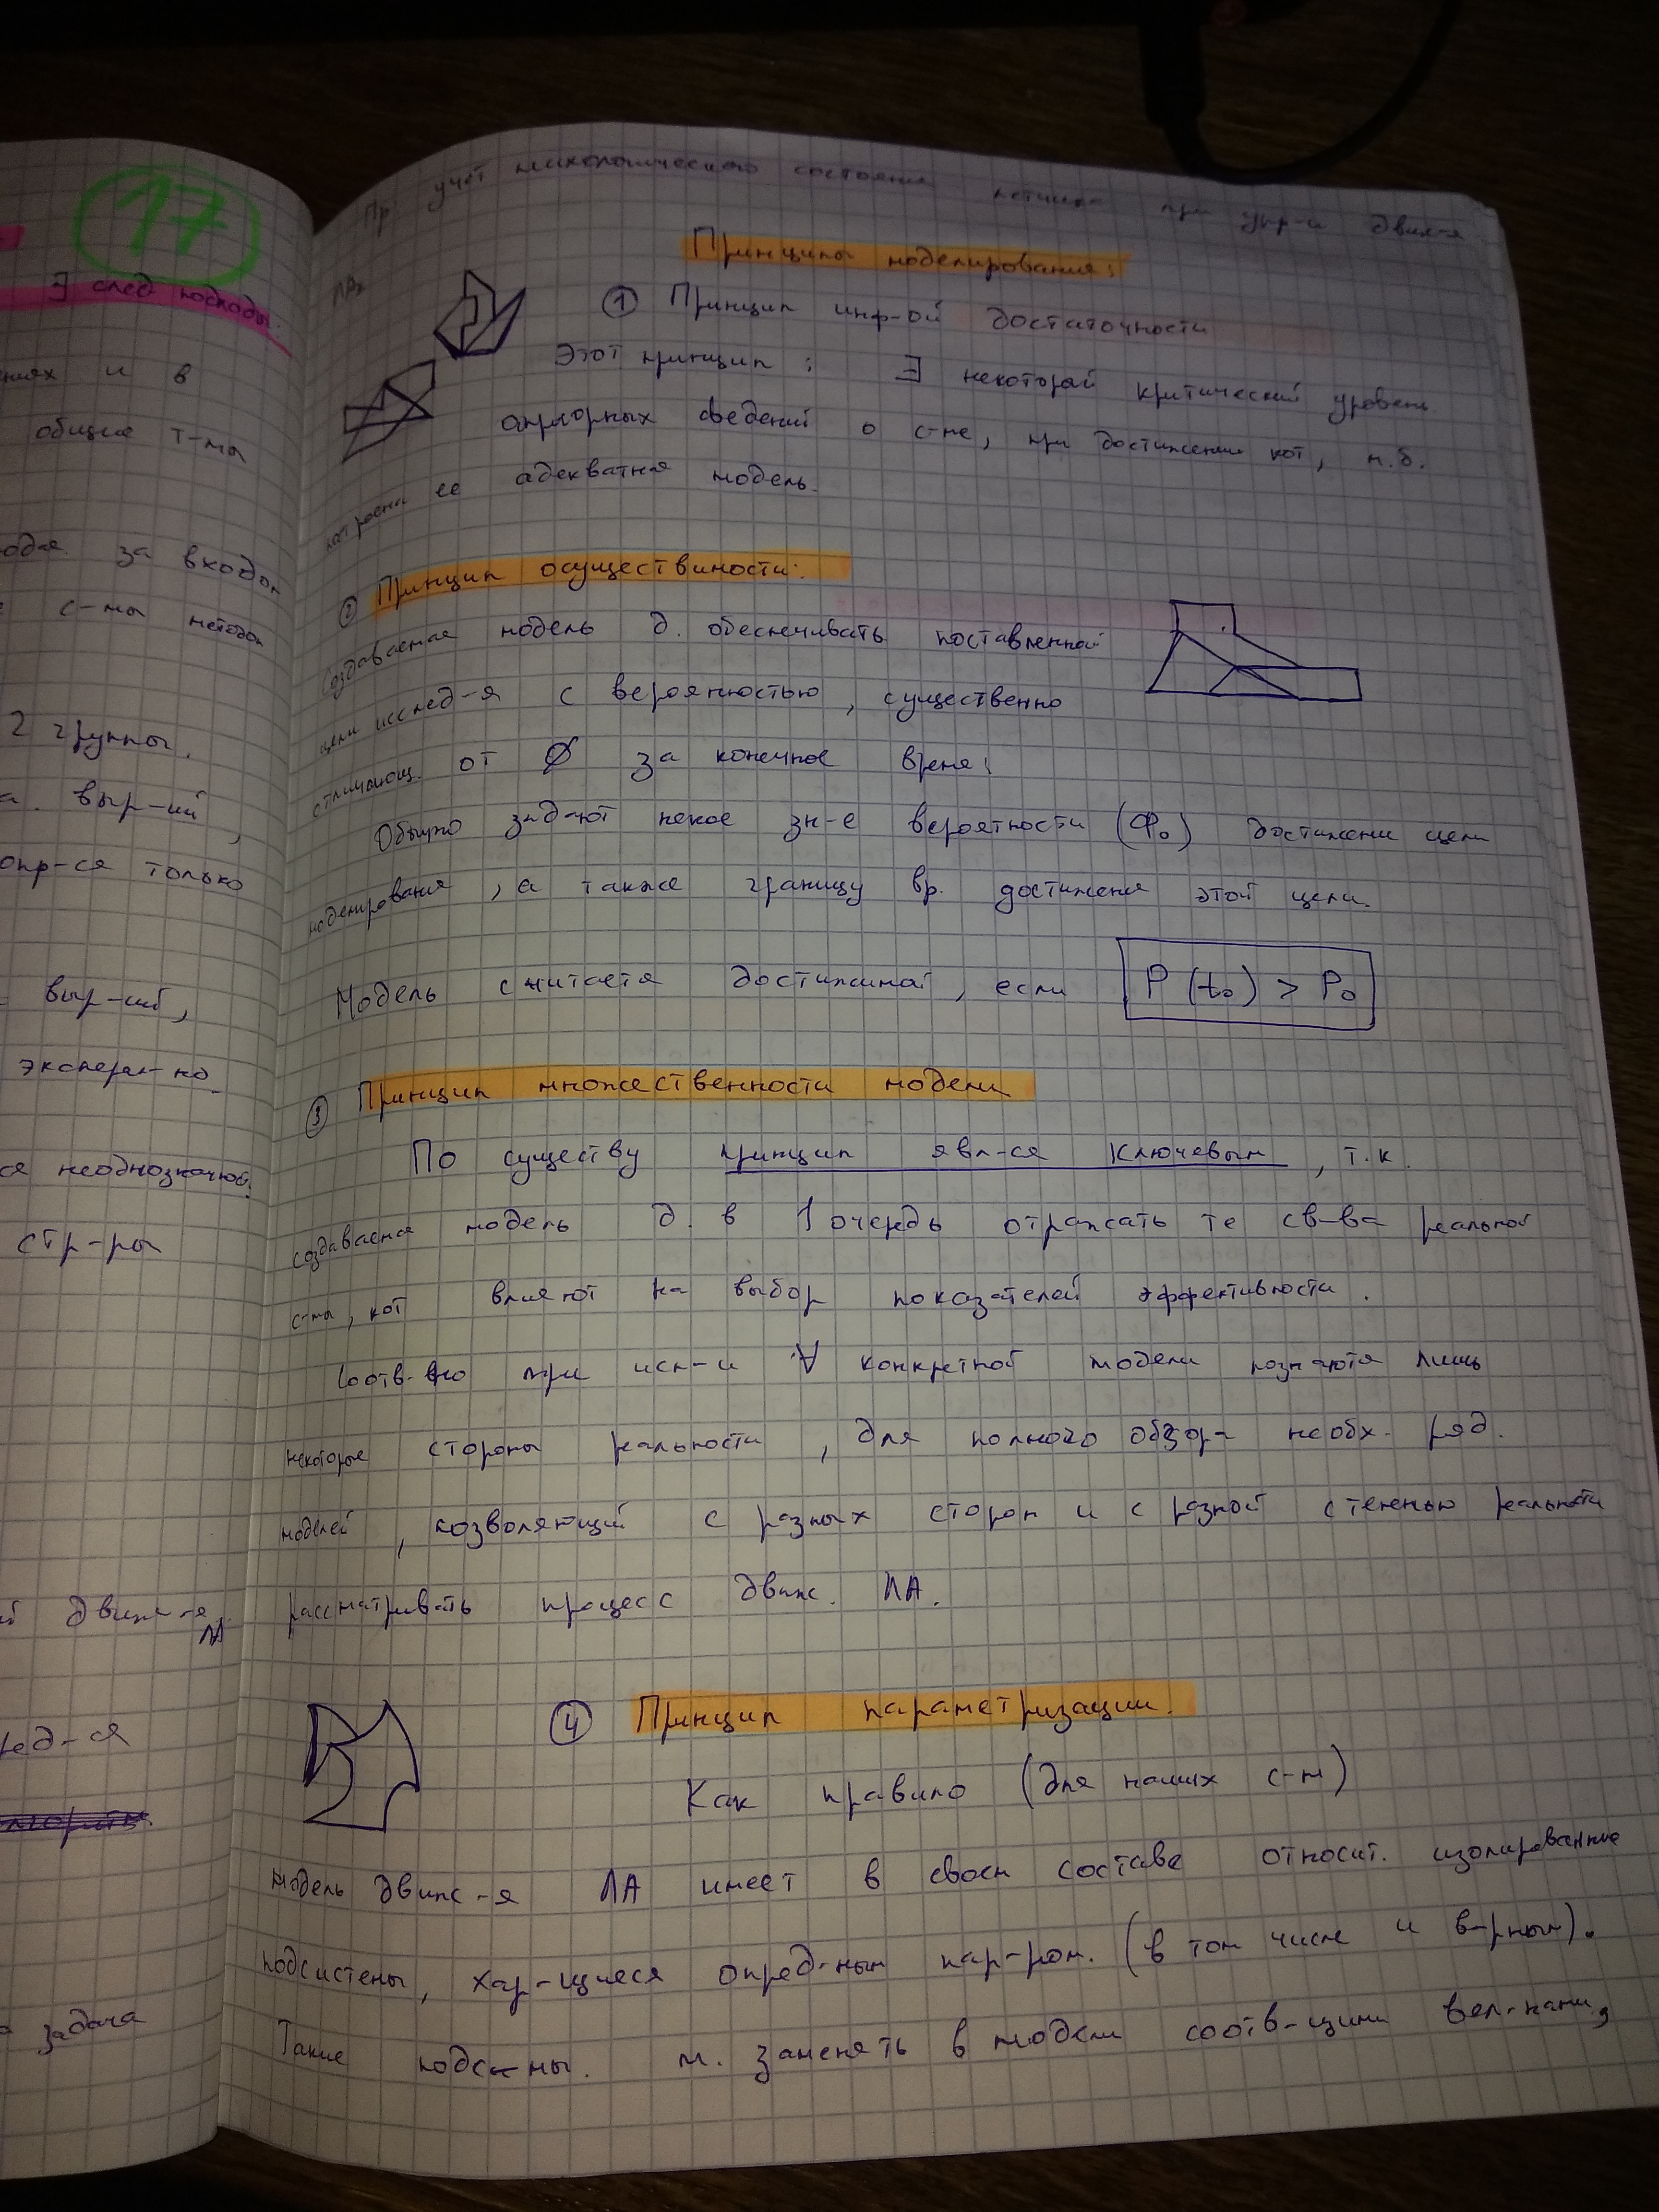 17
∃ след подходы:
ниях и в
общие т-мы
за входом
с-мы методом
2 группы.
выр-ий,
опр-ся только
выр-ий,
эксперим-но
ся неоднозначной.
стр-ры
движ-я
ЛА
ред-ся
задача
Пр: учёт психологического состояния летчика при упр-и движ-я
Принципы моделирования:
① Принцип инф-ой достаточности
Этот принцип: ∃ некоторый критический уровень
априорных сведений о с-ме, при достижении кот, м.б.
построена ее адекватная модель.
② Принцип осуществимости:
Создаваемая модель д. обеспечивать поставленной
цели исслед-я с вероятностью, существенно
отличающ. от Ø за конечное время;
Обычно задают некое зн-е вероятности (P₀) достижени цели
моделирования, а также границу вр. достижения этой цели.
Модель считается достижимой, если P(t₀) > P₀
③ Принцип множественности модели
По существу принцип явл-ся ключевым, т.к.
создаваемая модель д. в 1 очередь отражать те св-ва реальной
с-мы, кот влияют на выбор показателей эффективности.
Соотв-но при исп-и ∀ конкретной модели познаются лишь
некоторые стороны реальности, для полного обзора необх. ряд.
моделей, позволяющий с разных сторон и с разной степенью реальности
рассматривать процесс движ. ЛА.
④ Принцип параметризации.
Как правило (для наших с-м)
модель движ-я ЛА имеет в своем составе относит. изолированные
подсистемы, хар-щиеся опред-ным пар-ром. (в том числе и в-рным).
Такие подс-мы. м. заменять в модели соотв-щими вел-нами,